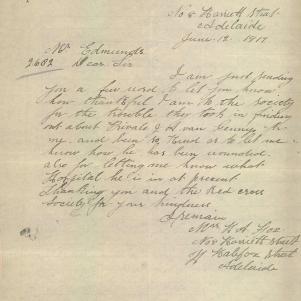 No 8 Harriett Street
Adelaide
June 12. 1917
Mr Edmunds
2682 Dear Sir
I am just sending
you a few words to let you know
how thankful I am to the society
for the trouble they took in finding
out about Private J A van Senning for
me and been so kind as to let me
know how he has been wounded.
also for letting me know what
Hospital he is in at present.
Thanking you and the Red cross
Society for your kindness.
I remain
Mrs H. A. Fox
No 8 Harriett Street
off Halifax Street
Adelaide